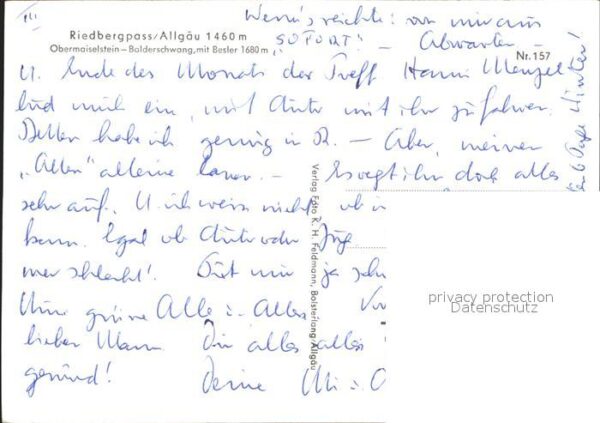 III
Wenn's reichte: von mir aus
Riedbergpass/Allgäu 1460 m
"SOFORT" - Abwarten -
Obermaiselstein — Balderschwang, mit Besler 1680 m
Nr. 157
U. Ende des Monats der Treff Hanni Menzel
lud mich ein, mit Auto mit ihr zu fahren.
Betten habe ich genug in R. - Aber, meinen
"Alten" alleine lassen. - Es regt ihn doch alles
sehr auf. U. ich weiss nicht, ob i
kann. Egal ob Auto oder Züge
mer schlecht! Tut mir ja sehr
Nun grüsse Alle :- Alles
lieber Mann. Dir alles alles
gesund!
Deine
Winter!
Verlag Foto K. H. Feldmann, Bolsterlang/Allgäu
privacy protection
Datenschutz